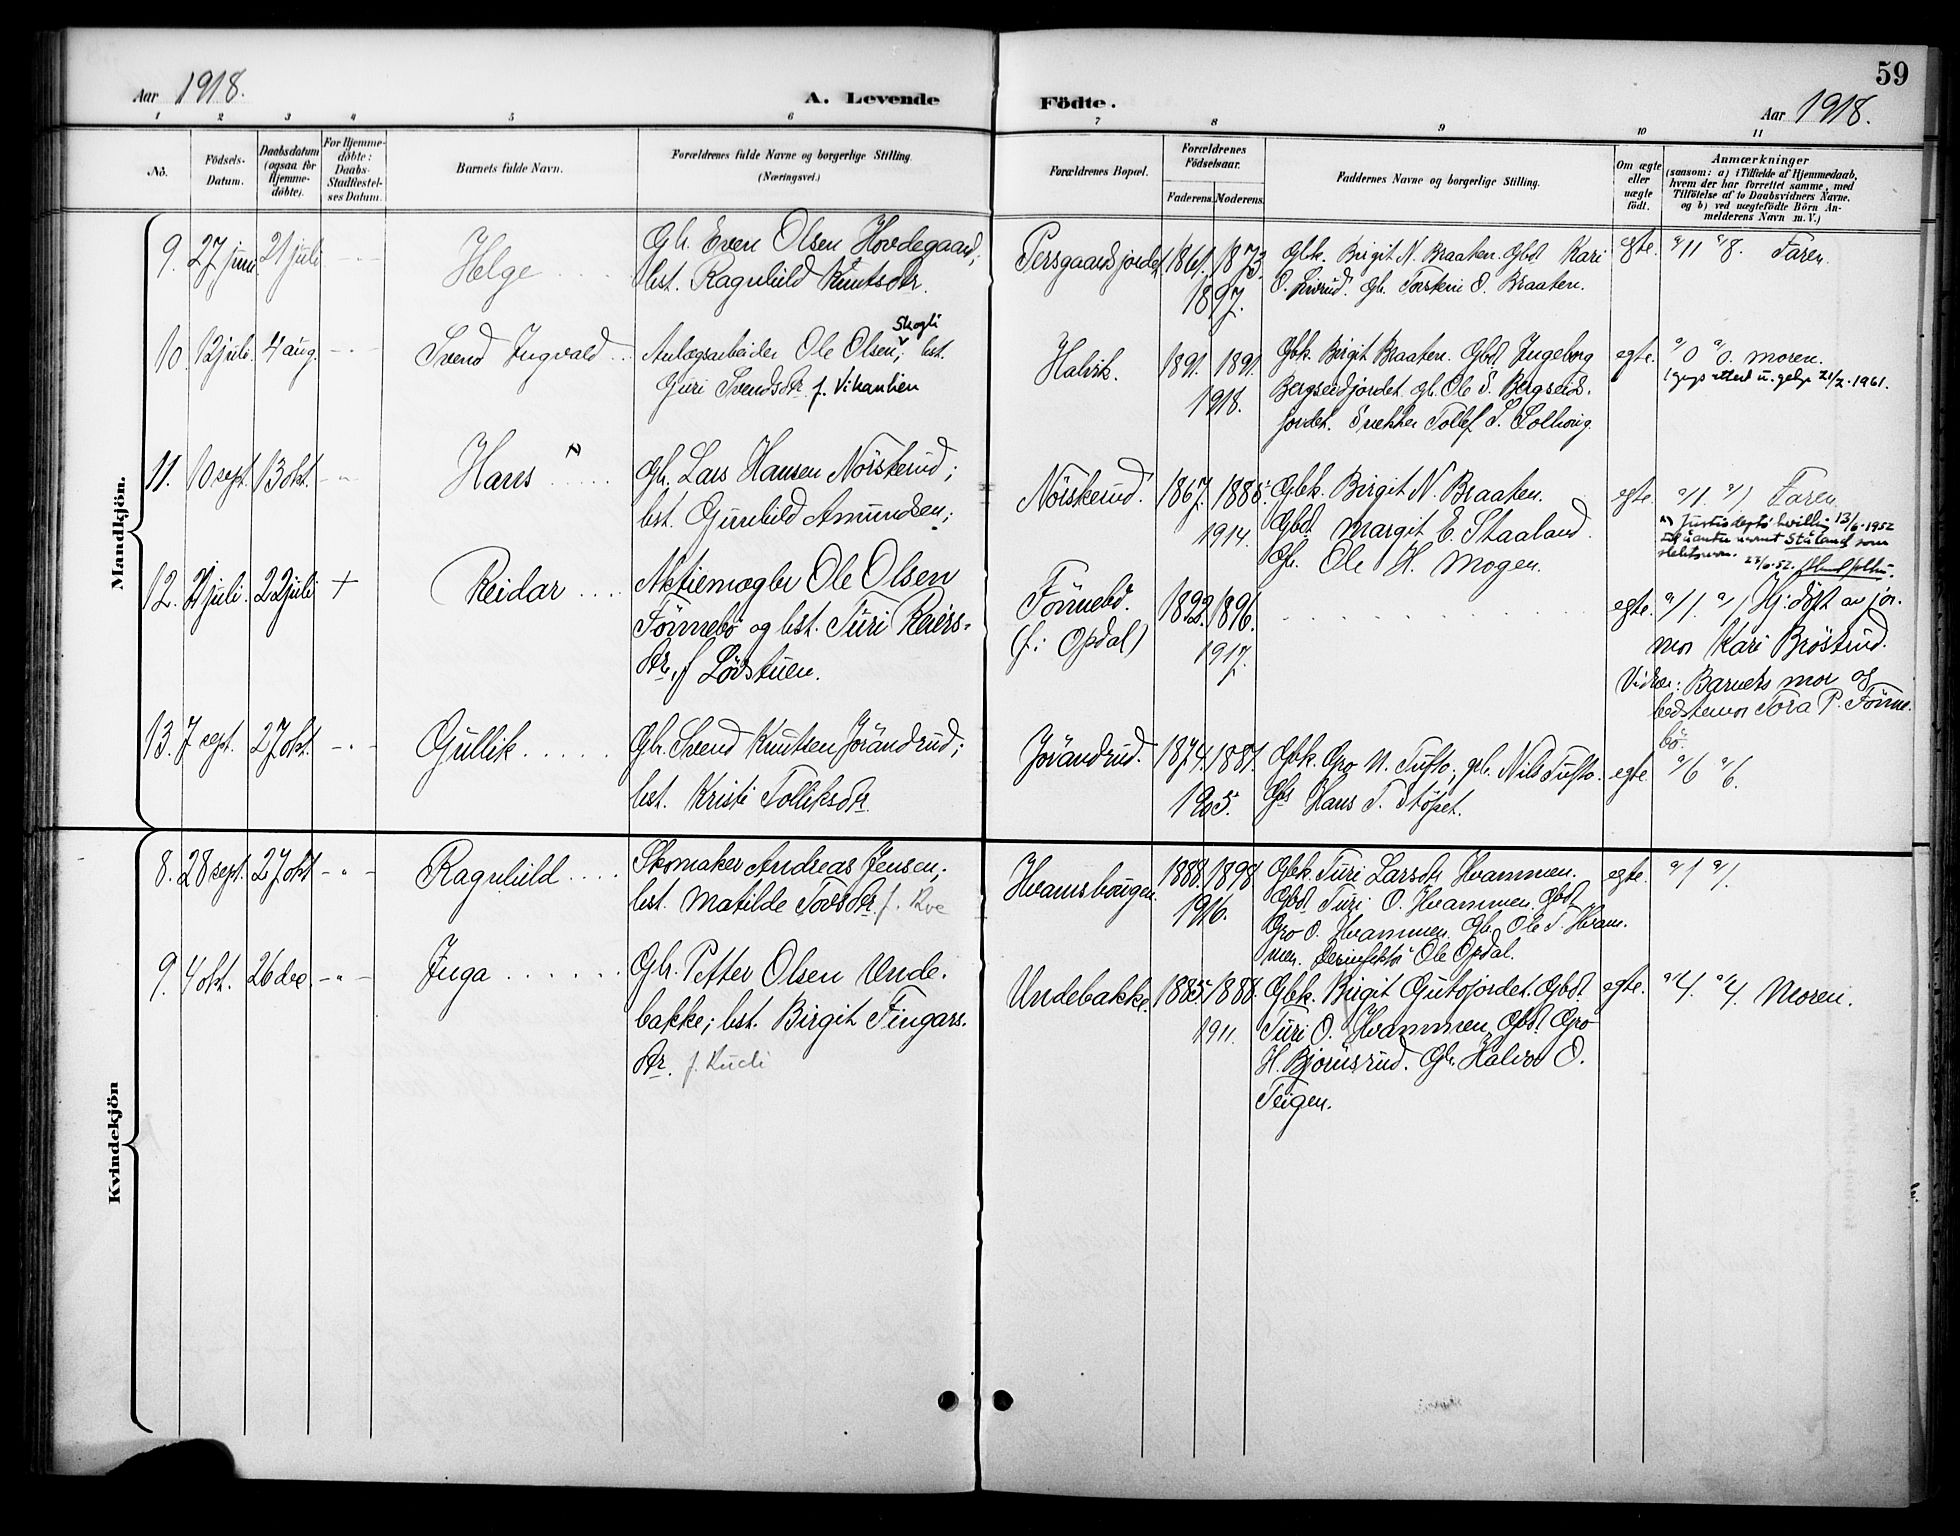 59
Aar 1918. A. Levende Födte. Aar 1918.
1 2 3 4 5 6 7 8 9 10 11
No.
Födsels-
Datum.
Daabsdatum
(ogsaa for
Hjemme-
döbte).
For Hjemme-
döbte:
Daabs-
Stadfæstel-
ses Datum.
Barnets fulde Navn.
Forældrenes fulde Navne og borgerlige Stilling.
(Næringsvei.)
Forældrenes Bopæl.
Forældrenes
Födselsaar.
Faderens. Moderens.
Faddernes Navne og borgerlige Stilling.
Om ægte
eller
uægte
födt.
Anmærkninger
(saasom: a) i Tilfælde af Hjemmedaab,
hvem der har forrettet samme, med
Tilföielse af to Daabsvidners Navne,
og b) ved uægtefödte Börn An-
melderens Navn m. V.)
Mandkjön.
9. 27 juni 21 juli - " - Helge
Gbr. Even Olsen Hovdegaard;
hst. Ragnhild Knutsdr.
Persgaardsjordet 1861. 1873.
1897.
Gbk. Birgit N. Braaten. Gbd Kari
O. Livrud. Gbr. Torstein O. Braaten.
egte. a/11 a/8. Faren.
10. 12 juli. 4 aug. - " - Svend Ingvald
Anlægsarbeider Ole Olsen, Skogli hst.
Guri Svendsdr f. Vikanlien
Halvik. 1891. 1891.
1918.
Gbk. Birgit Braaten. Gbd Ingeborg
Bergseidjordet. Gbr. Ole S. Bergseid-
jordet. Snekker Tollef S. Solhoug.
egte. a/0 a/0. Moren.
21/2.1961.
11. 10 sept. 13 okt. - " - Hans
Gbr. Lars Hansen Nörskerud;
hst. Gunhild Amundsen;
Nörskerud. 1867. 1885.
1914.
Gbk. Birgit N. Braaten.
Gbd Margit E. Staaland.
Gbr. Ole H. Mogen.
egte. a/1. a/1 Faren
13/6.1952
navnet Stuland som
slektsnavn. 23/6.52.
12. 21 juli. 22 juli + Reidar
Aktiemegler Ole Olsen
Fönnebö og hst. Turi Reiers-
dr, f Lövstuen.
Fönnebö.
(f: Opdal)
1892. 1896.
1917.
egte. a/1. a/1 Hj. döpt av jor-
mor Kari Bröstrud.
Vidner: Barnets mor og
bedstemor Tora P. Fönne-
bö.
13. 7 sept. 27 okt. - " - Gullik
Gbr. Svend Knutsen Jörandrud;
hst. Kristi Tolliksdr.
Jörandrud. 1874. 1881.
1905.
Gbk. Gro N. Tufto, gbr. Nils Tufto.
Gbs Hans T. Stöpet.
egte. a/6 a/6.
Kvindekjön
8. 28 sept. 27 okt - " - Ragnhild
Skomaker Andreas Jensen;
hst. Matilde Tovsdr f. Kve
Hvamshougen. 1888. 1898.
1916.
Gbk. Turi Larsdr Hvammen.
Gbd. Turi O. Hvammen. Gbd
Gro O. Hvammen. Gbr. Ole T. Hvam-
men. Desinfektör Ole Opdal.
egte. a/1 a/1.
9. 4 okt. 26 dec. - " - Inga
Gbr. Petter Olsen Unde-
bakke; hst. Birgit Fingars-
dr. f. Rudi
Undebakke. 1885 1888.
1911.
Gbk. Birgit Gutojordet. Gbd
Turi O. Hvammen, Gbd. Gro
H. Bjönsrud. Gbr. Halvor O.
Teigen.
egte. a/4. a/4. Moren.